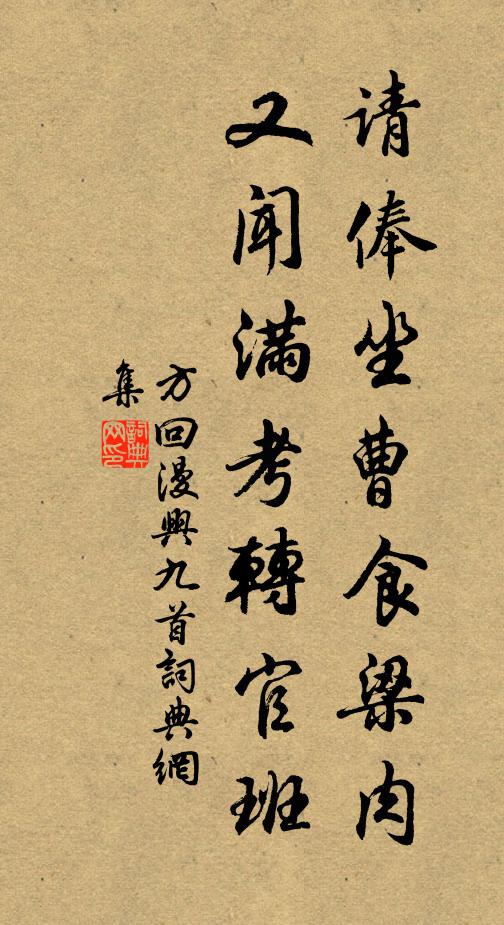 请俸坐曹食梁肉
又闻满考轉官班
方回漫興九首詞典網
集
詞典
网印